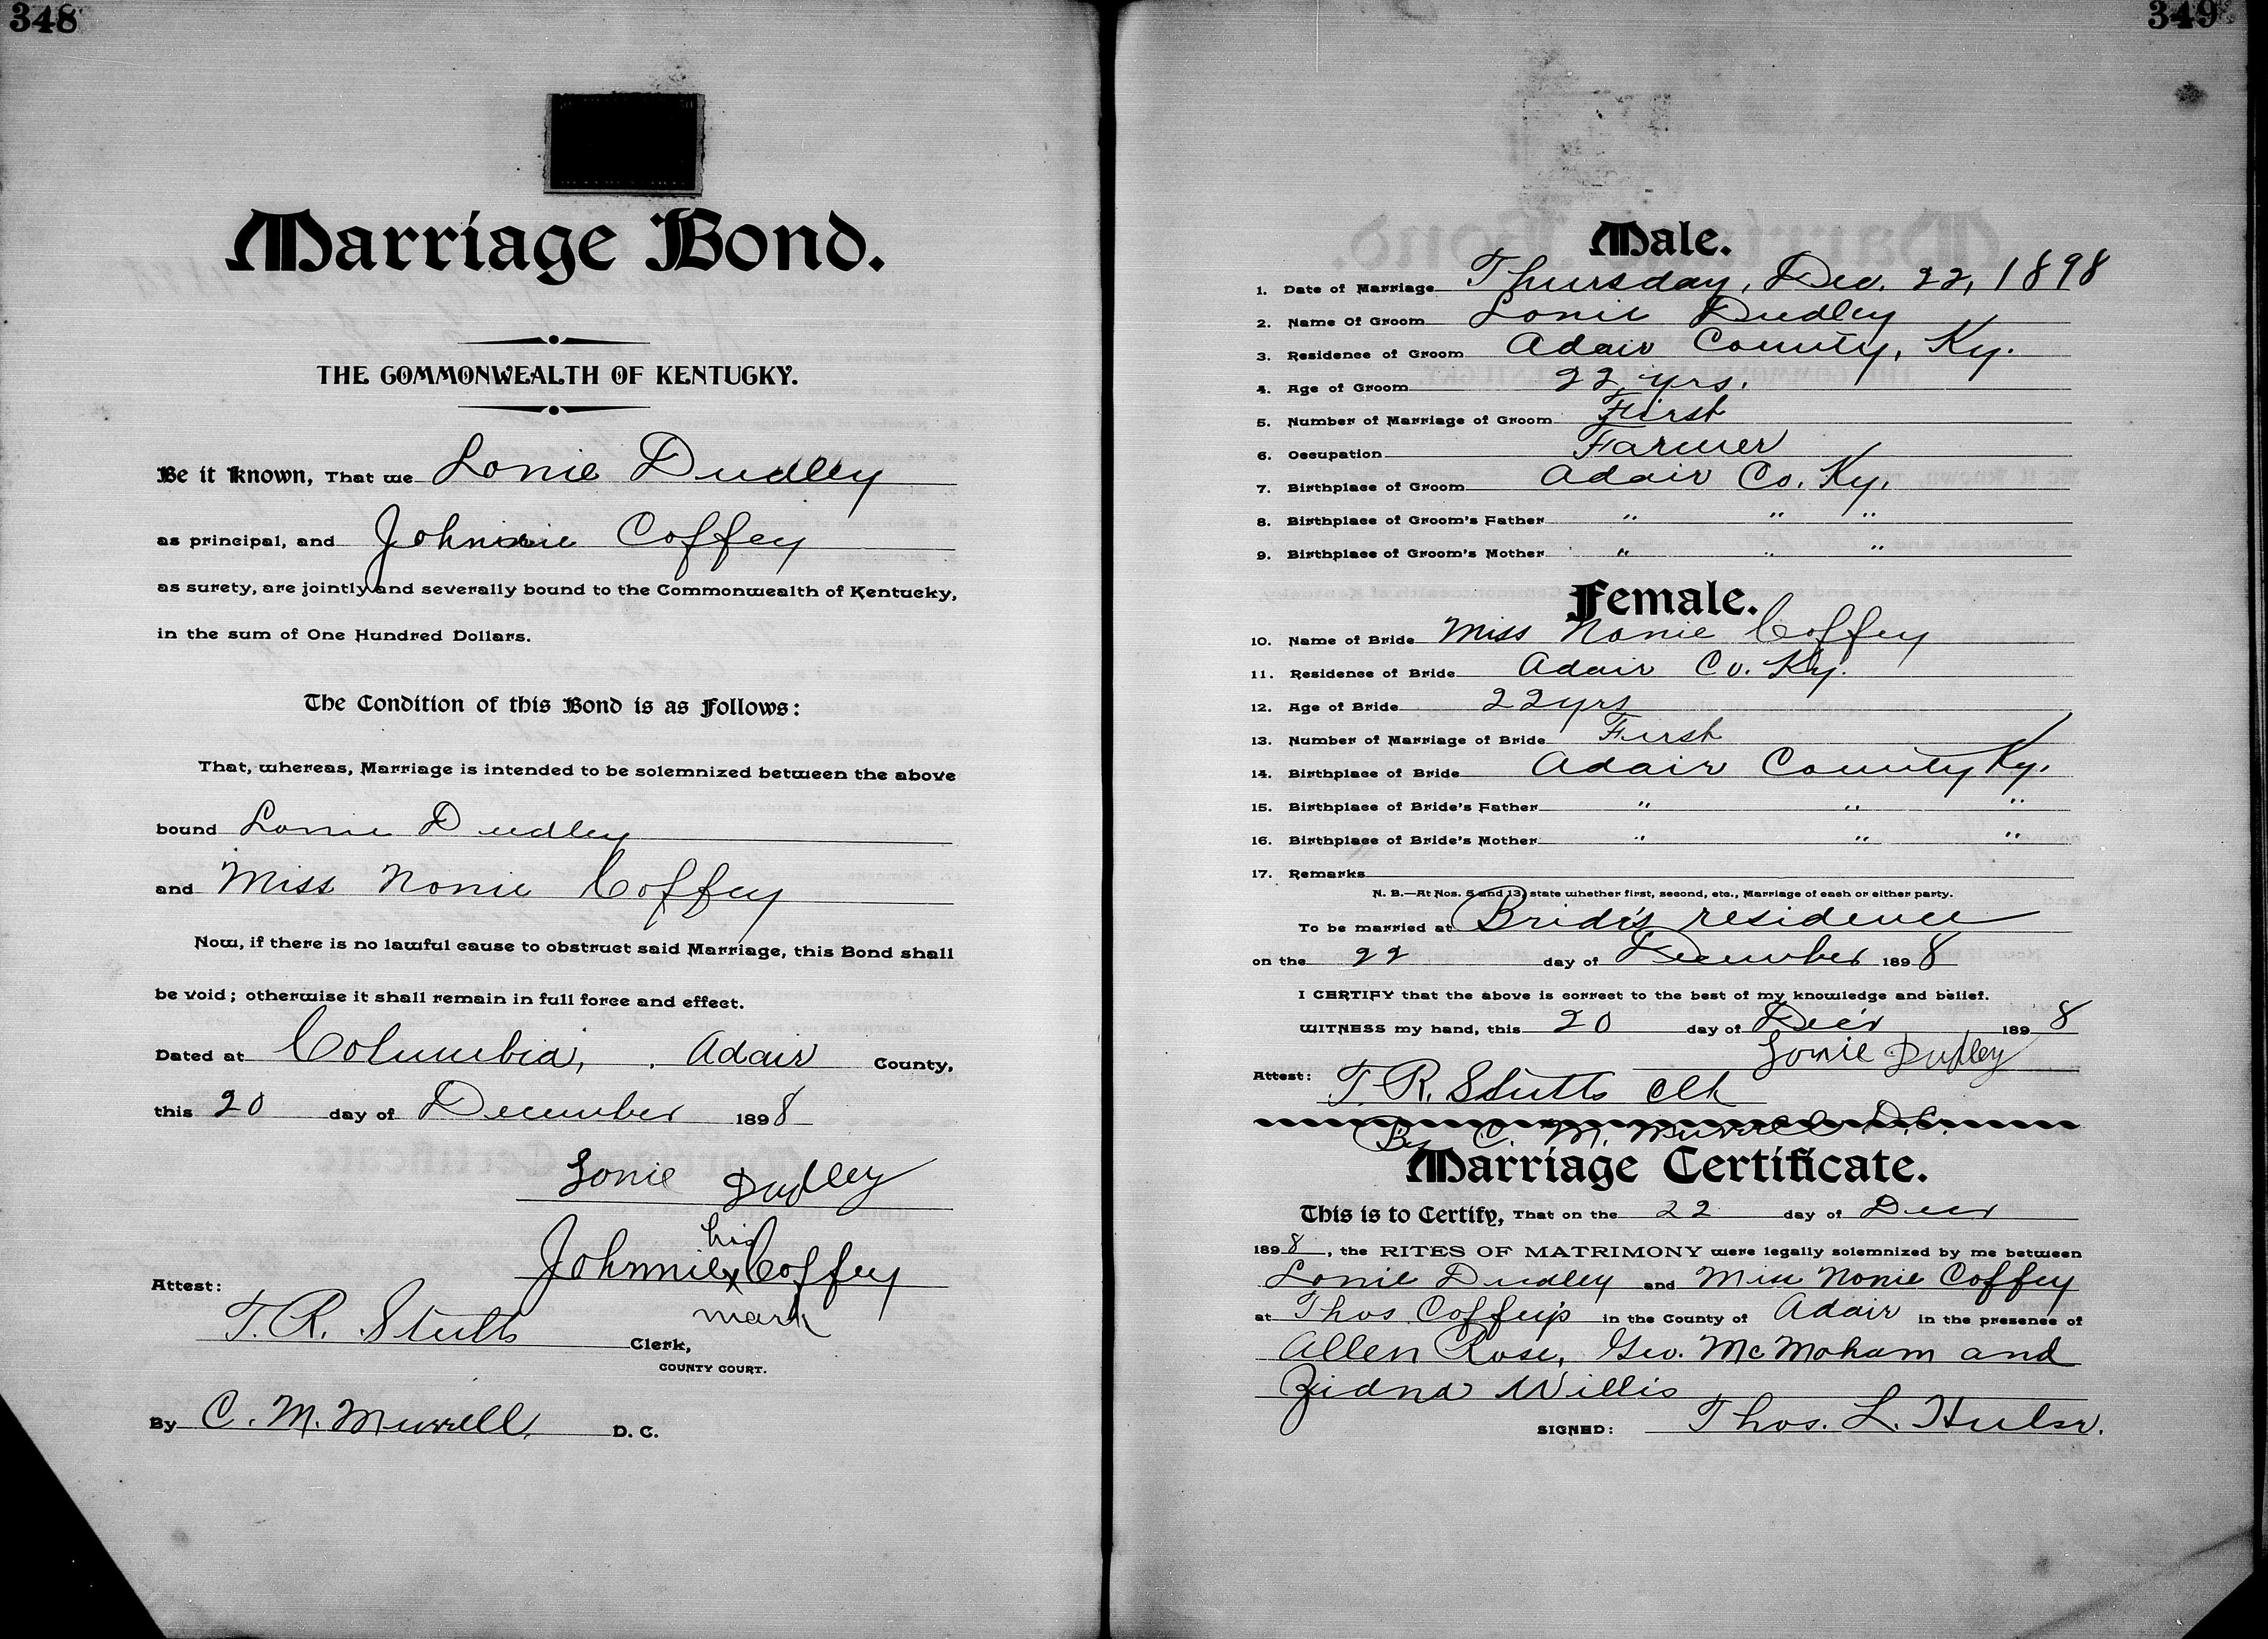 348
Marriage Bond.
THE COMMONWEALTH OF KENTUCKY.
Be it Known, That we Lonie Dudley
as principal, and Johnnie Coffey
as surety, are jointly and severally bound to the Commonwealth of Kentucky,
in the sum of One Hundred Dollars.
The Condition of this Bond is as Follows:
That, whereas, Marriage is intended to be solemnized between the above
bound Lonie Dudley
and Miss Nonie Coffey
Now, if there is no lawful cause to obstruct said Marriage, this Bond shall
be void; otherwise it shall remain in full force and effect.
Dated at Columbia, Adair County,
this 20 day of December 1898
Lonie Dudley
his
Johnnie x Coffey
mark
Attest:
T. R. Stults Clerk,
COUNTY COURT.
By C. M. Murrell, D. C.
349
Male.
1. Date of Marriage Thursday, Dec. 22, 1898
2. Name Of Groom Lonie Dudley
3. Residence of Groom Adair County, Ky.
4. Age of Groom 22 yrs.
5. Number of Marriage of Groom First
6. Occupation Farmer
7. Birthplace of Groom Adair Co. Ky.
8. Birthplace of Groom's Father " " "
9. Birthplace of Groom's Mother " " "
Female.
10. Name of Bride Miss Nonie Coffey
11. Residence of Bride Adair Co. Ky.
12. Age of Bride 22 yrs
13. Number of Marriage of Bride First
14. Birthplace of Bride Adair County Ky.
15. Birthplace of Bride's Father " " "
16. Birthplace of Bride's Mother " " "
17. Remarks
N. B.—At Nos. 5 and 13, state whether first, second, etc., Marriage of each or either party.
To be married at Bride's residence
on the 22 day of December 1898
I CERTIFY that the above is correct to the best of my knowledge and belief.
WITNESS my hand, this 20 day of Dec'r 1898
Lonie Dudley
Attest: T. R. Stults Clk
By C. M. Murrell D.C.
Marriage Certificate.
This is to Certify, That on the 22 day of Decr
1898, the RITES OF MATRIMONY were legally solemnized by me between
Lonie Dudley and Miss Nonie Coffey
at Thos Coffey's in the County of Adair in the presence of
Allen Rose, Geo. McMaham and
Willis
SIGNED: Thos. L. Hulse.